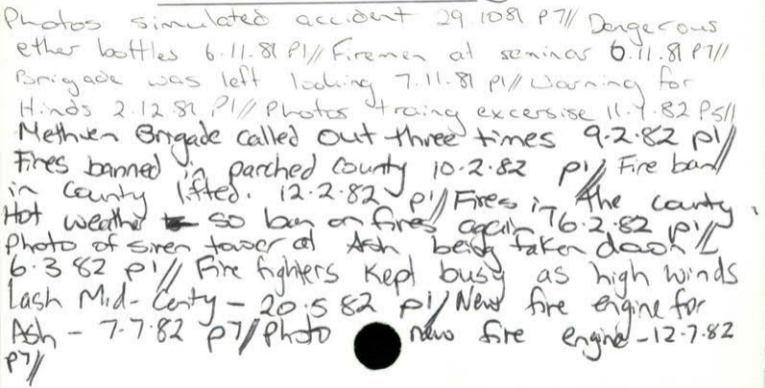 Photos simulated accident 29.1081 P7// Dangerous
ether bottles 6.11.81 P1// Firemen at seminar 6.11.81 P7//
Brigade was left looking 7.11.81 p1// Warning for
Hinds 2.12.81 P1// Photos traing excersise 11.1.82 P5//
Methven Brigade called out three times 9.2.82 p1//
Fires banned in parched county 10.2.82 p1// Fire ban
in County lifted. 12.2.82 p1// Fires in the county
Hot weather so ban on fires again 16.2.82 p1//
Photo of siren tower at Ash being taken down //
6.3 82 p1// Fire fighters kept busy as high winds
lash Mid-Centy - 20.5 82 p1/ New fire engine for
Ash - 7.7.82 p7// Photo new fire engine - 12.7.82
p7//